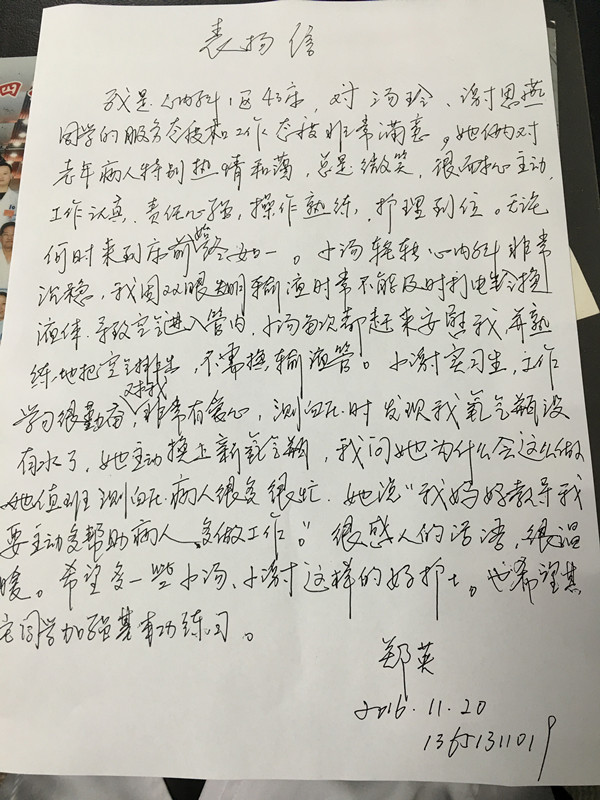 表扬信
我是心内科1区43床，对汤玲、谢思燕
同学的服务态度和工作态度非常满意，她俩对
老年病人特别热情和蔼，总是微笑，很有耐心主动，
工作认真，责任心强，操作熟练，护理到位。无论
何时来到床前始终如一。小汤轮转心内科非常
沉稳，我因双眼失明输液时常不能及时打电铃换
液体，导致空气进入管内，小汤每次都赶来安慰我并熟
练地把空气排出，不需换输液管。小谢实习生，工作
学习很勤奋，对我非常有爱心，测血压时发现我氧气瓶没
有水了，她主动换上新氧气瓶，我问她为什么会这么做
她值班测血压病人很多很忙，她说"我妈妈教导我
要主动多帮助病人，多做工作。"很感人的话语，很温
暖。希望多一些小汤、小谢这样的好护士。也希望其
它同学加强基本功练习。
郑英
2016.11.20